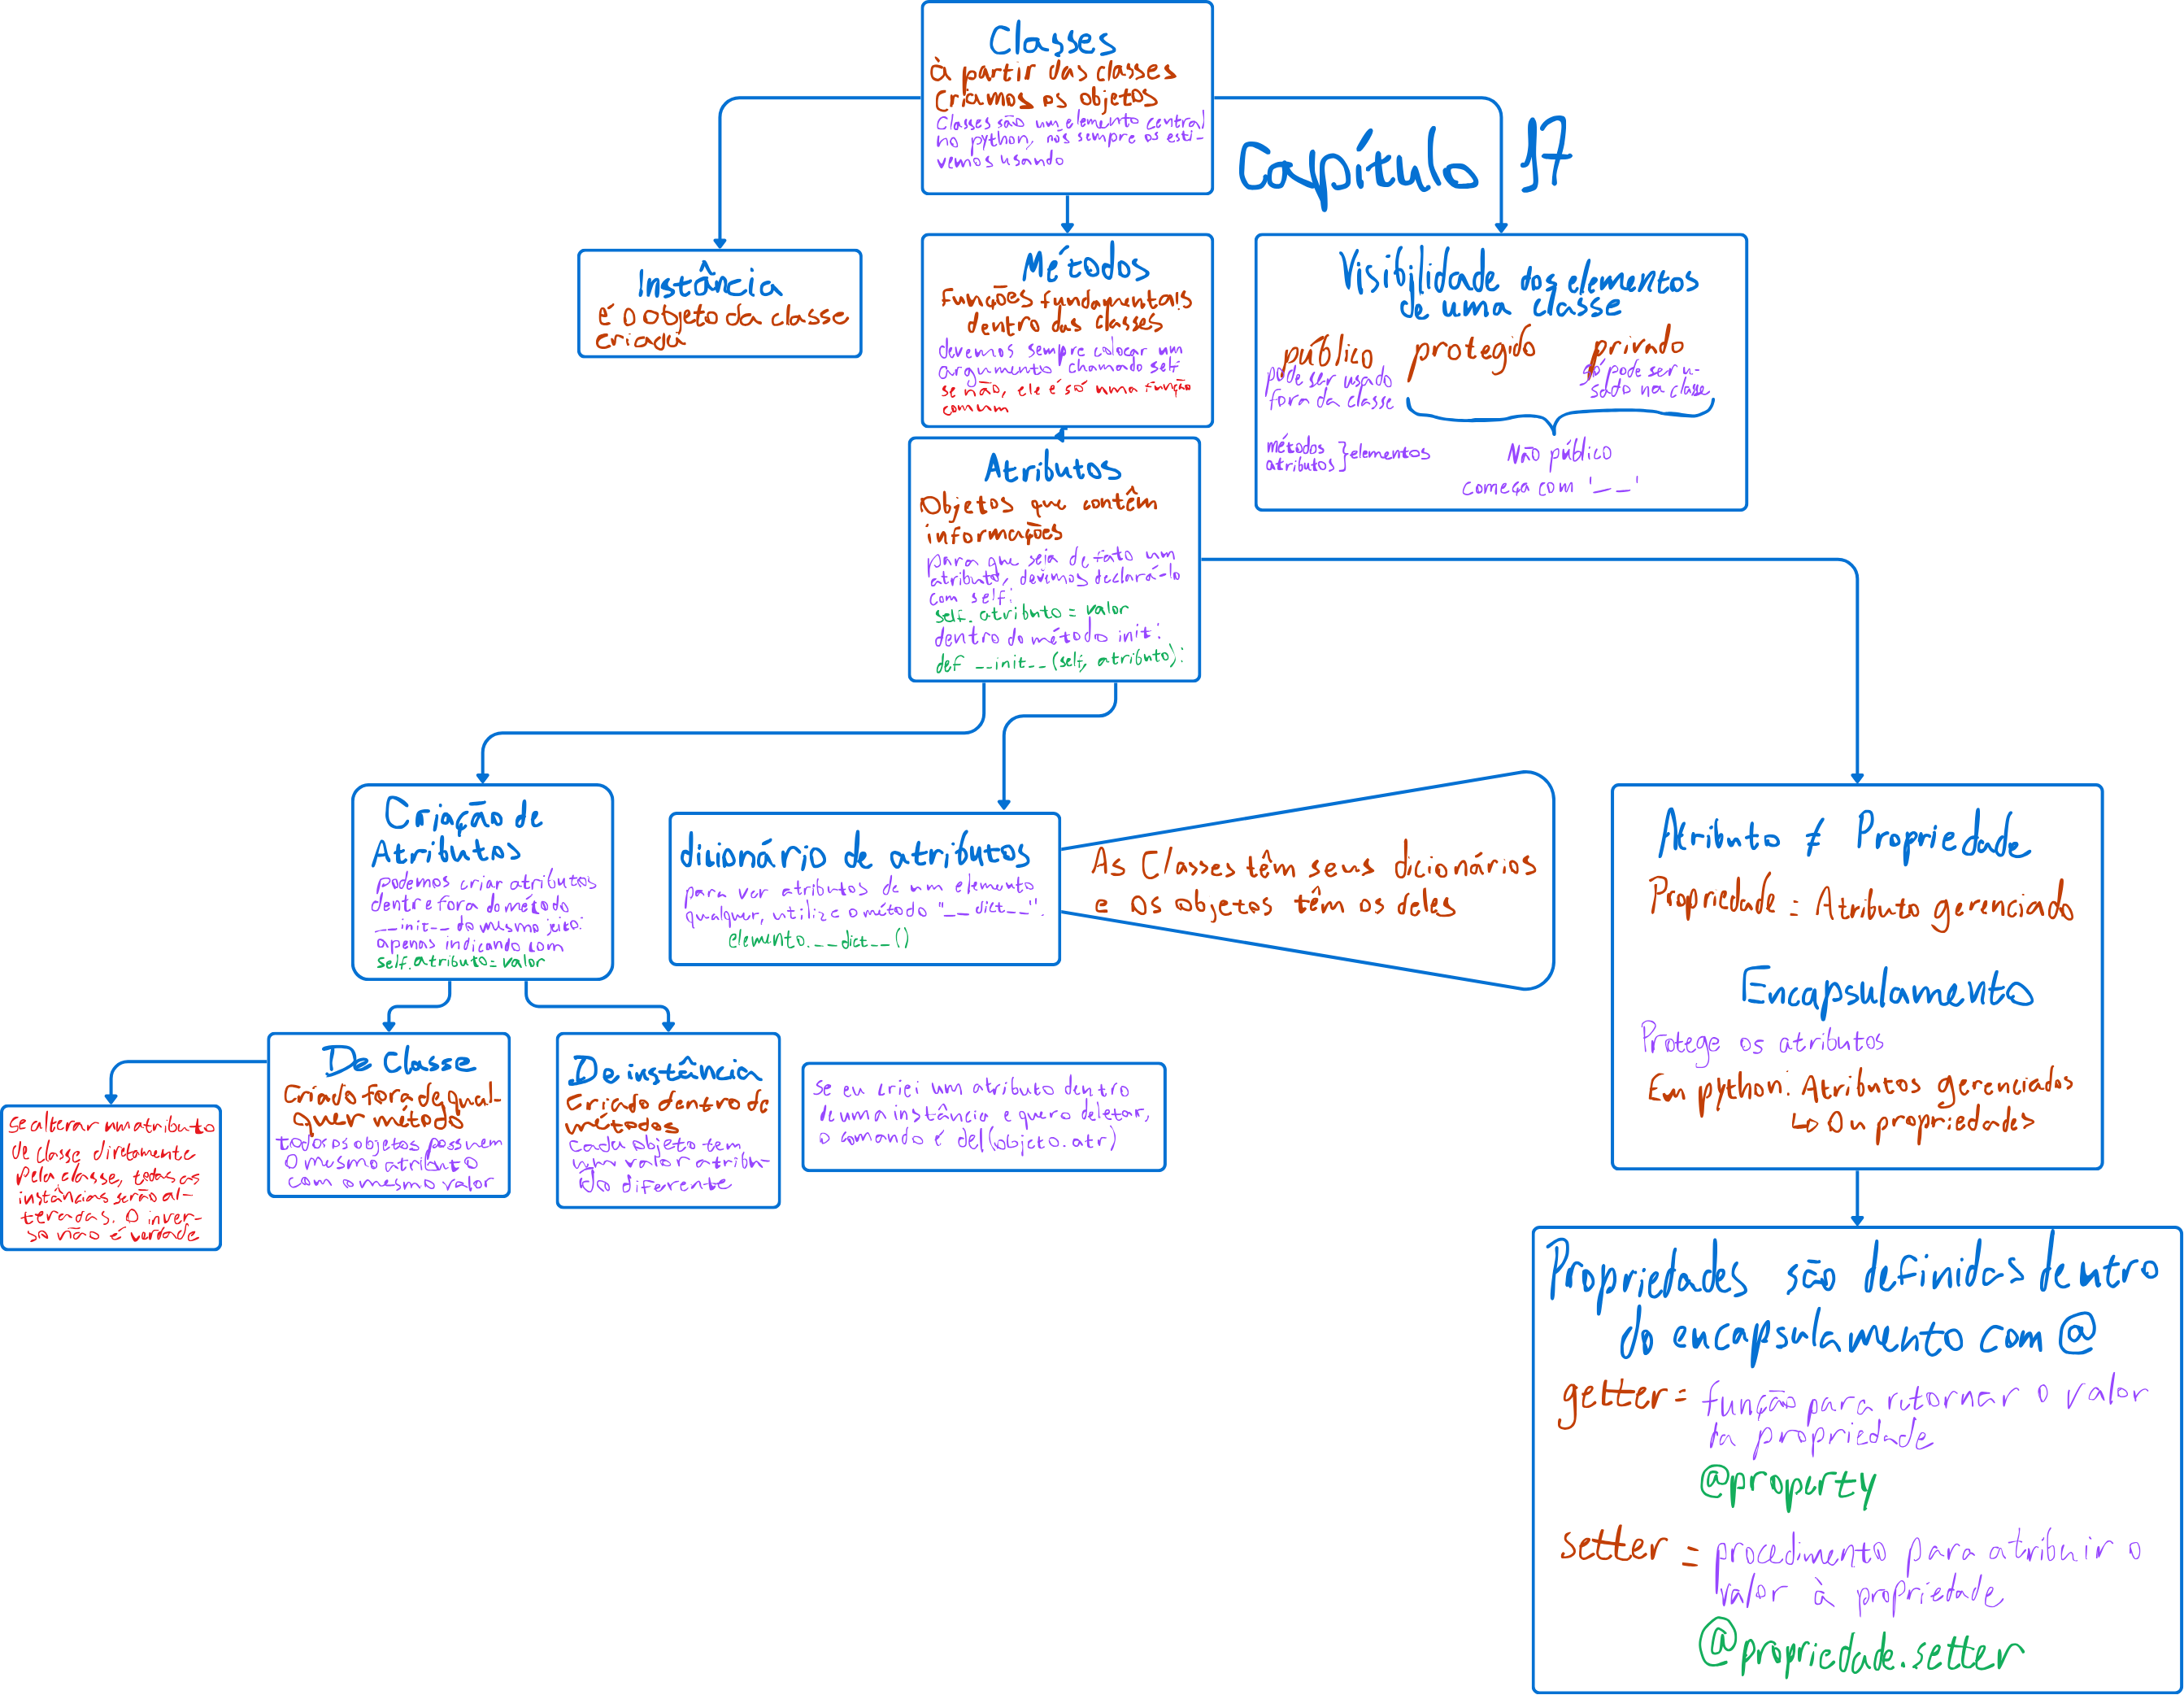 Classes
à partir das classes
criamos os objetos
Classes são um elemento central
no python, nós sempre os esti-
vemos usando
Capítulo 17
Instância
é o objeto da classe
criada
Métodos
funções fundamentais
dentro das classes
devemos sempre colocar um
argumento chamado self
se não, ele é só uma função
comum
Visibilidade dos elementos
de uma classe
público protegido privado
pode ser usado
fora da classe
só pode ser u-
sado na classe
métodos
atributos } elementos
Não público
começa com '__'
Atributos
Objetos que contêm
informações
para que seja de fato um
atributo, devemos declará-lo
com self:
self.atributo = valor
dentro do método init:
def __init__(self, atributo):
Criação de
Atributos
podemos criar atributos
dentre fora do método
__init__ do mesmo jeito:
apenas indicando com
self.atributo = valor
dicionário de atributos
para ver atributos de um elemento
qualquer, utilize o método "__dict__".
elemento.__dict__()
As Classes têm seus dicionários
e os objetos têm os deles
Atributo ≠ Propriedade
Propriedade = Atributo gerenciado
Encapsulamento
Protege os atributos
Em python: Atributos gerenciados
↳ Ou propriedades
De classe
Criado fora de qual-
quer método
todos os objetos possuem
o mesmo atributo
com o mesmo valor
De instância
Criado dentro de
métodos
cada objeto tem
um valor atribu-
ído diferente
Se eu criei um atributo dentro
de uma instância e quero deletar,
o comando é del(objeto.atr)
Se alterar um atributo
de classe diretamente
pela classe, todas as
instâncias serão al-
teradas. O inver-
so não é verdade
Propriedades são definidas dentro
do encapsulamento com @
getter = função para retornar o valor
da propriedade
@property
setter = procedimento para atribuir o
valor à propriedade
@propriedade.setter